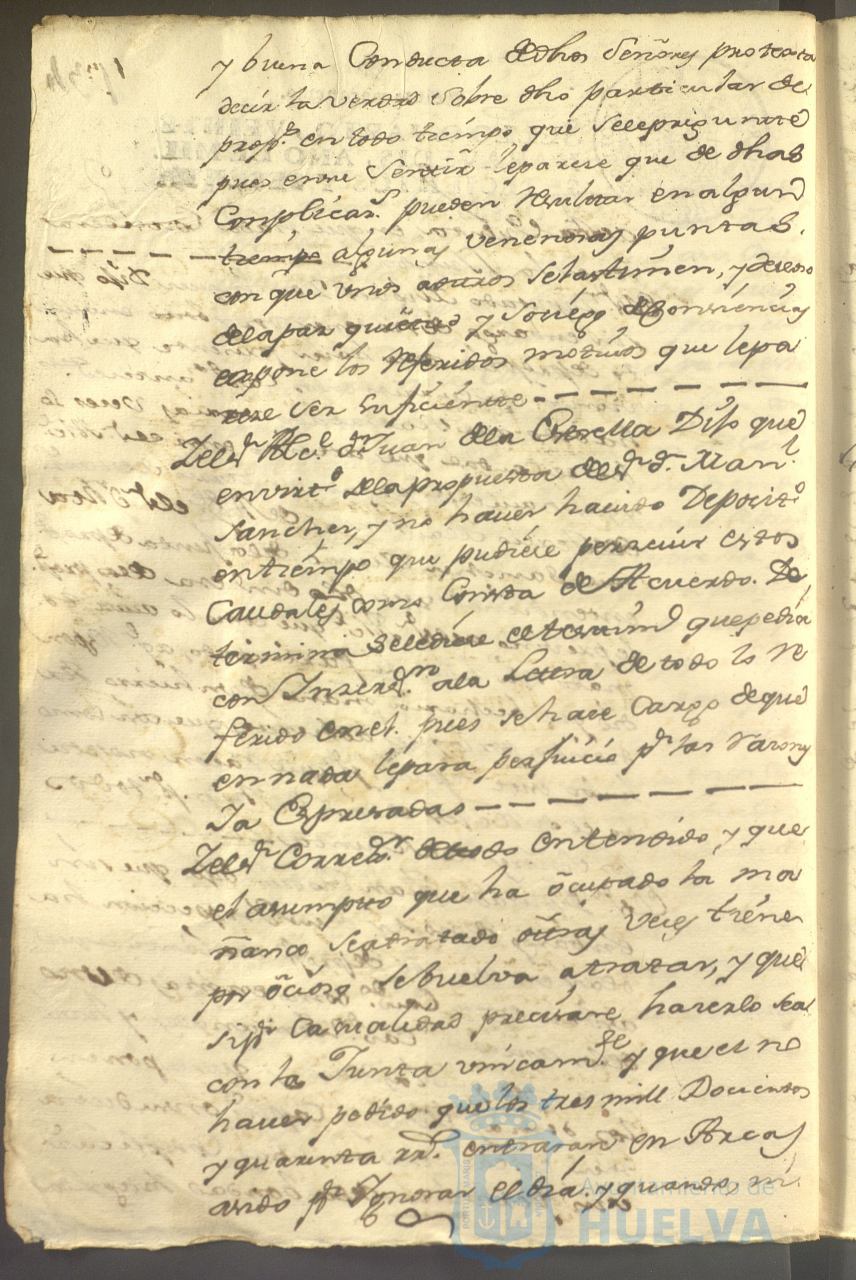 y buena Conducta de dhos Señores protexta
decir la verdad sobre dho particular de
propt. en todo tiempo que se le pregunate
pues en su sentir le parese que de dhas
Conplicars. pueden resultar en algun
tiempo algunas venenosas puntas.
con que unos a otros se lastimen, y deseoso
de la paz quietud y sociego de Consiencias
expone los referidos motivos que le pa
rese ser suficiente
Y el Sr. Alce. Dn. Juan de la Estrella Dijo que
en virto. de la propuesta del Sr. Dn. Manl.
Sanchez, y no haver havido Deposito.
en tiempo que pudiese persevir estos
Caudales como Consta de Acuerdo. De
termina se le diese el testimo. que pedia
con Insercon. a la Letra de todo lo re
ferido en el. pues se hace Cargo de que
en nada le para perjuicio pr. las razones
Ya Expresadas
Y el Sr. Corregor. de todo entendido y que
el asumpto que ha ocutado la ma
ñana se a tratado otras veces tiene
por ocioso se buelva a tratar, y que
si pr. casualidad precisare hacerlo sea
con la Junta unicamte. y que el no
haver pedido que los tres mill Docientos
y quarenta rrs. entraran en Arcas
a sido pr. Ygnorar el dia. y quando, ni
Ayuntamiento de
HUELVA